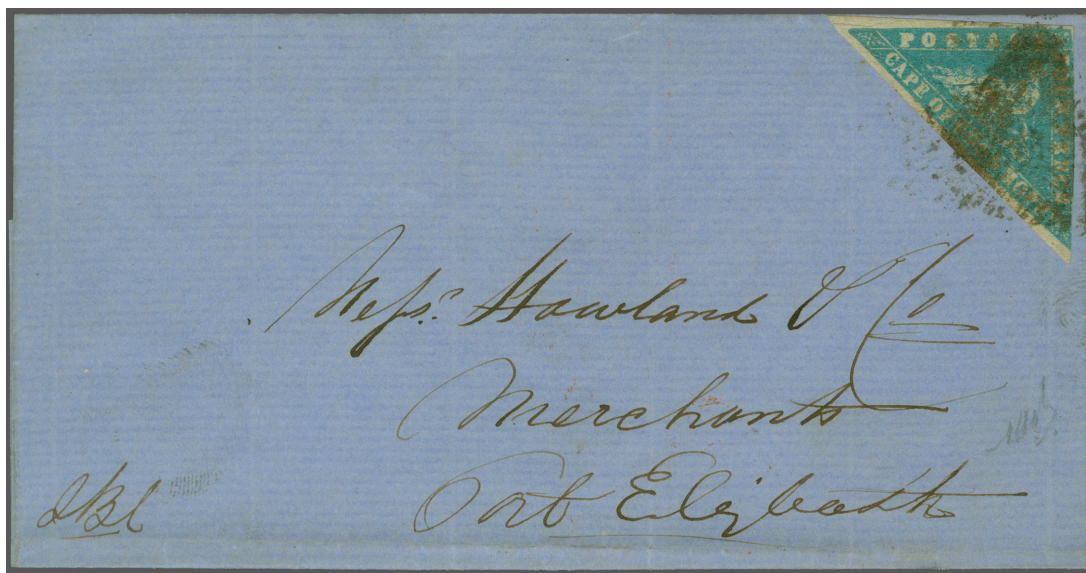 POSTAGE
CAPE OF GOOD HOPE
FOUR PENCE
Messrs. Howland & Co
Merchants
Port Elizbeth